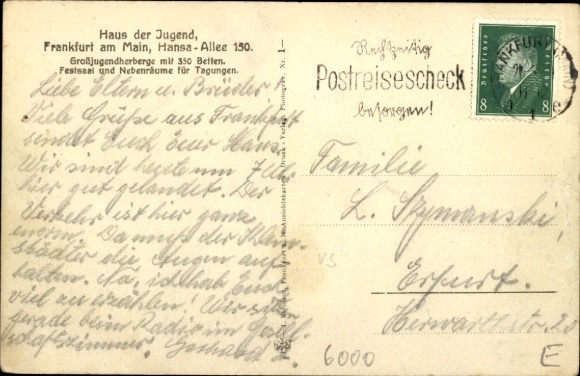 Haus der Jugend,
Frankfurt am Main, Hansa-Allee 150.
Großjugendherberge mit 350 Betten.
Festsaal und Nebenräume für Tagungen.
Liebe Eltern u. Brüder!
Viele Grüße aus Frankfurt
sendet Euch Euer Hans.
Wir sind heute um 7 Uhr
hier gut gelandet. Der
Verkehr ist hier ganz
enorm. Da muß der Klein-
städter die Augen auf-
halten. Na, ich hab Euch
viel zu erzählen! Wir sitzen
gerade beim Radio im Gesell-
schaftszimmer.
Nr. 1—
Rechtzeitig
Postreisescheck
besorgen!
FRANKFURT
Deutsches
Reich
8 8
Familie
L. Szymanski,
Erfurt.
Herwarthstr. 20
VS
6000
E